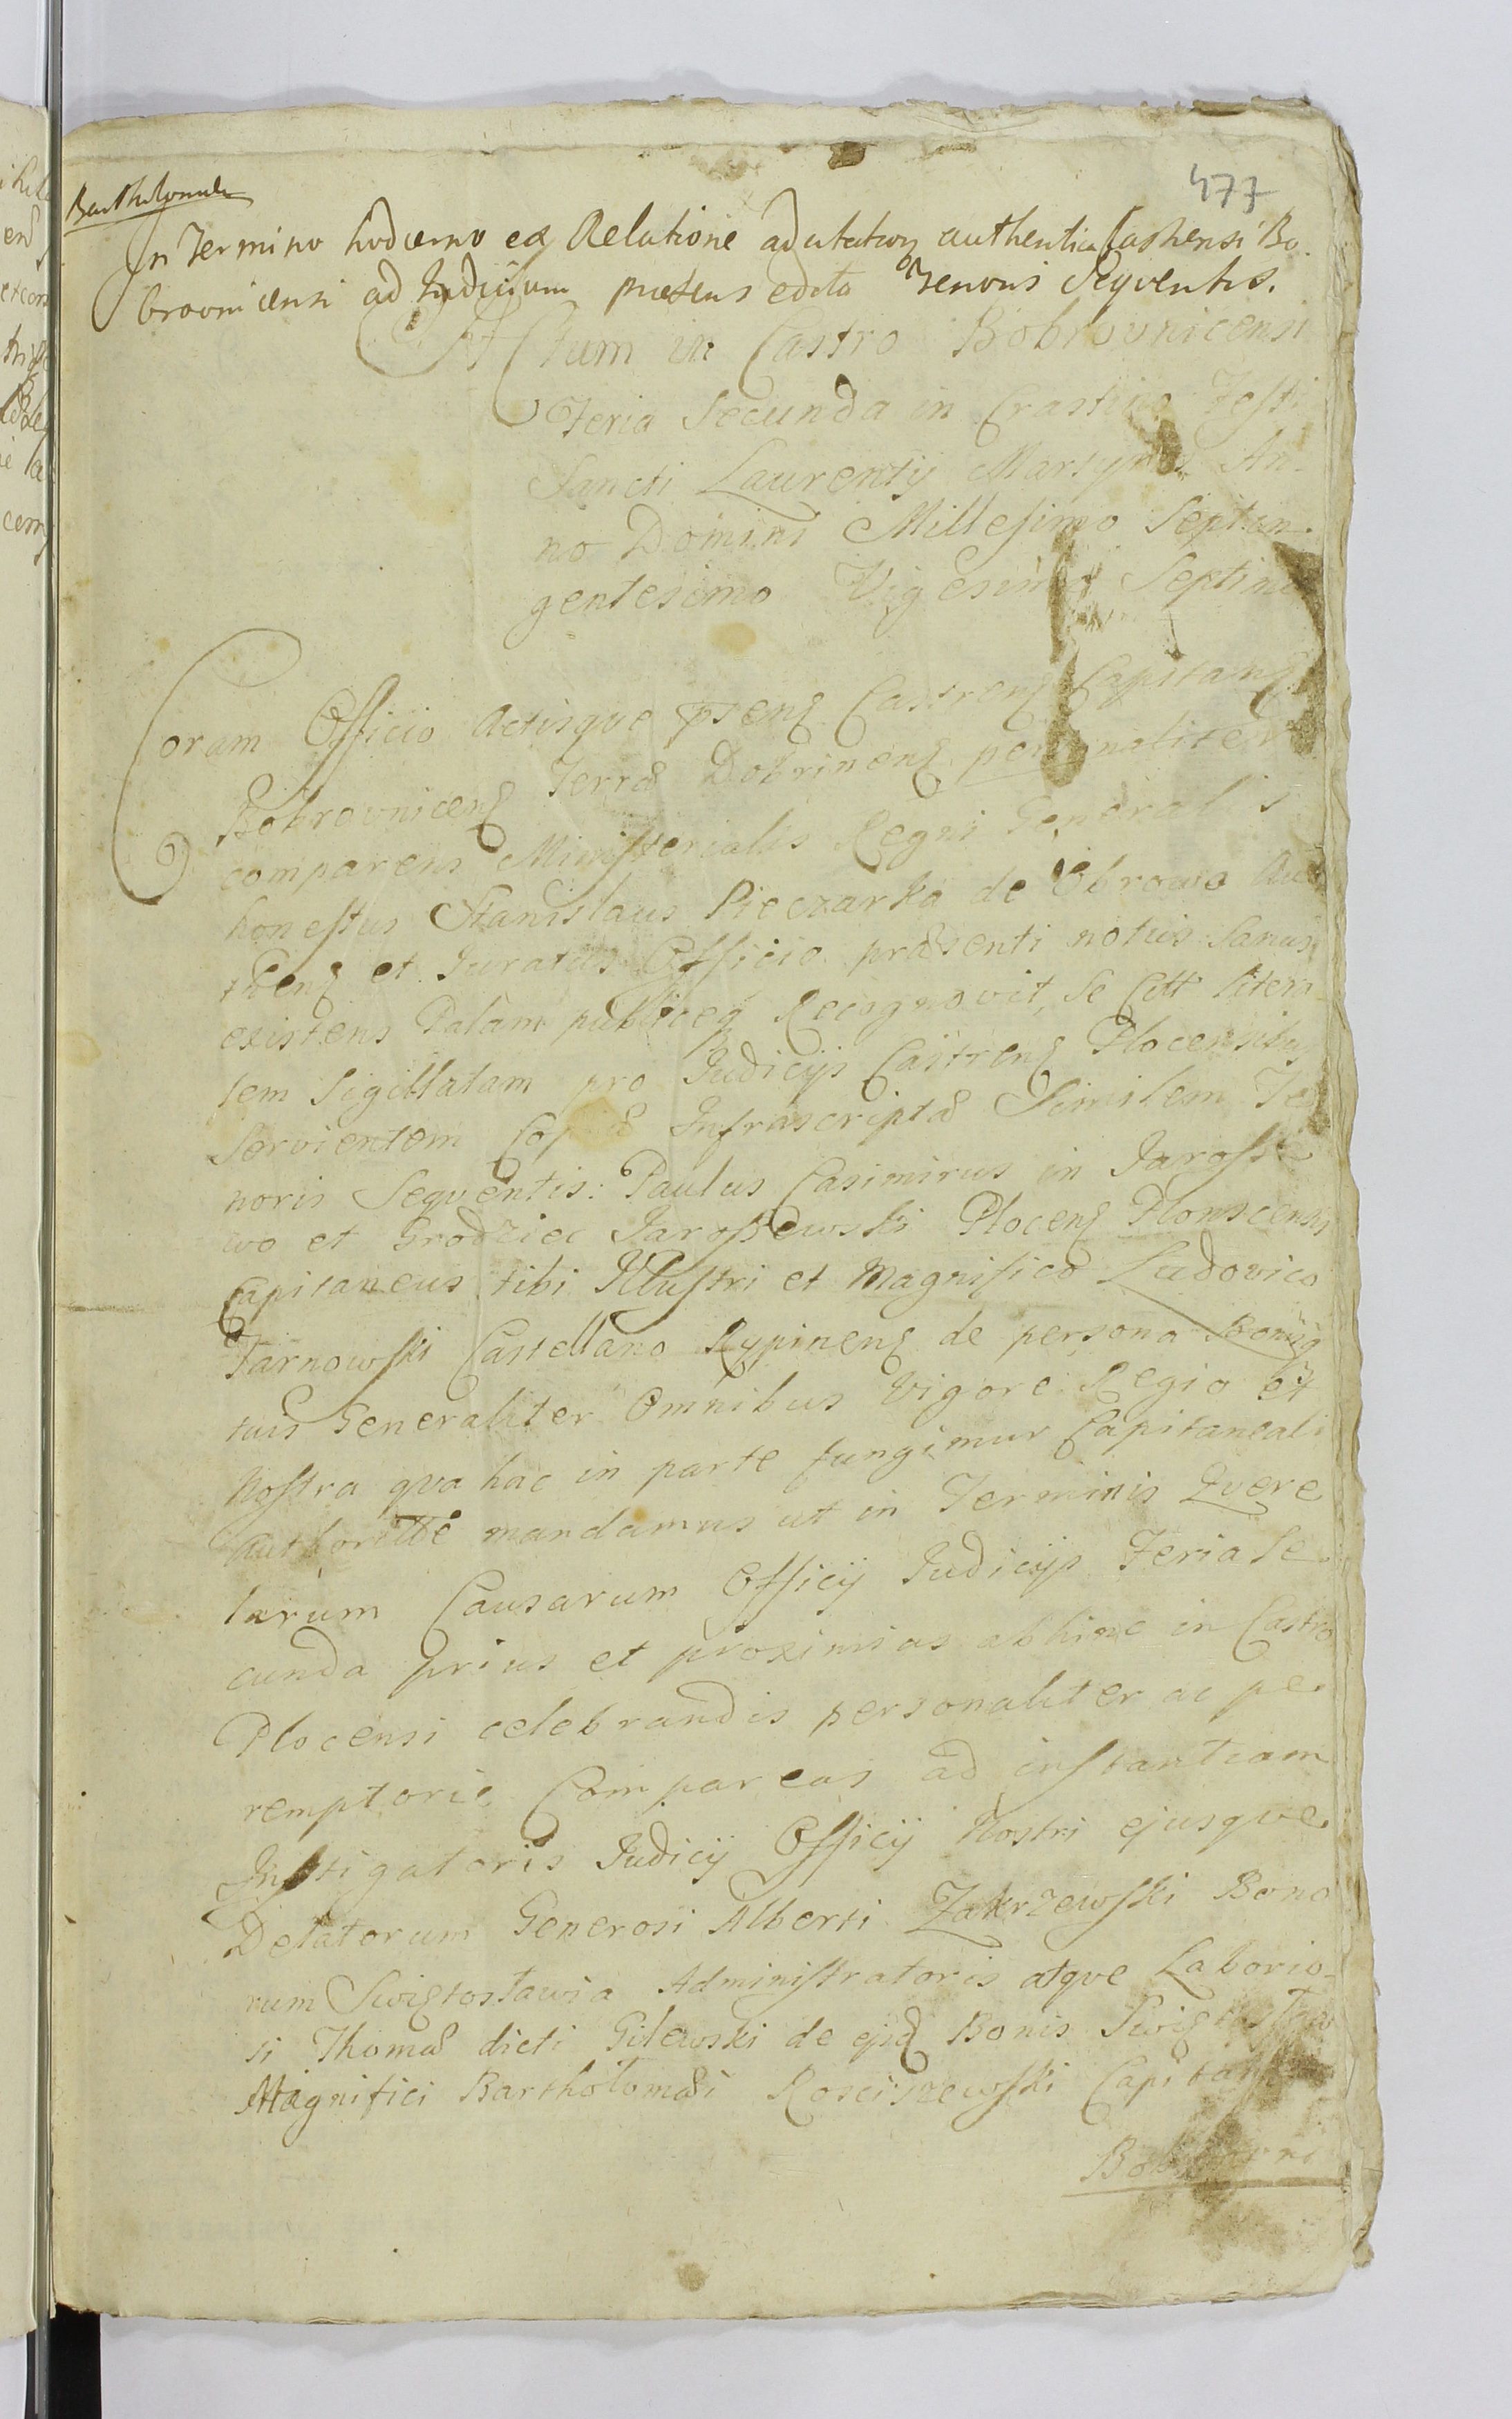 477
Bartholomaei
In Termino hodierno ex Relatione ad Citationem authentica Castrensi Bo-
brovnicensi ad Judicium praesens edita Tenoris Sequentis.
Actum in Castro Bobrovnicensi
Feria Secunda in Crastino Festi
Sancti Laurentij Martyris An-
no Domini Millesimo Septin-
gentesimo Vigesimo Septimo
Coram Officio Actisque pseng Castreng Capitang
Bobrovniceng Terræ Dobrineng personaliter
comparens Ministerialis Regni Generalis
honestus Stanislaus Pieczarka de Obrowo Aut
theng et Juratus Officio præsenti notus Sanus
existens Palam publiceq Recognovit, Se Citt Litera
lem Sigillatam pro Judicijs Castreng Plocensibus
servientem Copiæ Infrascriptæ Similem Te
noris Sequentis: Paulus Casimirus in Jarosse
wo et Grodziec Jarossewski Ploceng Plonscensis
Capitaneus tibi Illustri et Magnifico Ludovico
Tarnowski Castellano Rypineng de persona Bonisq
tuis Generaliter Omnibus Vigore Regio et
Nostra qva hac in parte fungimur Capitaneali
Authoritte mandamus ut in Terminis Qvere
larum Causarum Officij Judicijs Feria Se
cunda prius et proximius abhinc in Castro
Plocensi celebrandis personaliter ac pe
remptorie Compareas ad instantiam
Instigatoris Judicij Officij Nostri ejusqve
Delatorum Generosi Alberti Zakrzewski Bono
rum Swiętosławia Administratoris atqve Laborio-
si Thomæ dicti Gilewski de ejsd Bonis Swiętosław
Magnifici Bartholomæi Rosciszewski Capitanei
Bobrowni